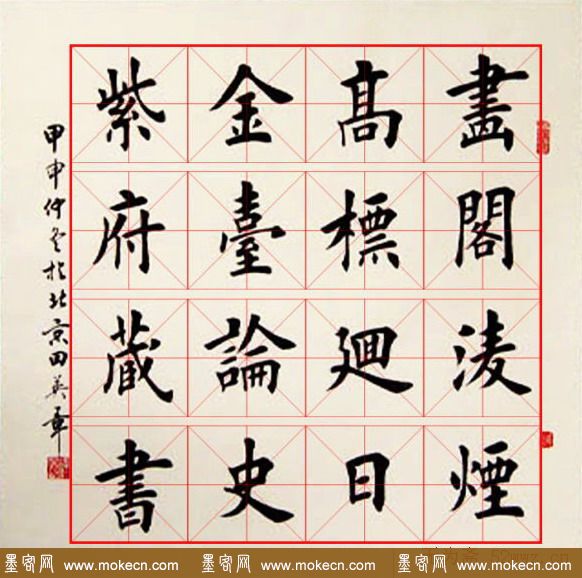 畫閣淩煙
髙標廻日
金臺論史
紫府藏書
甲申仲冬於北京田英章
墨客网 www.mokecn.com 墨客网 www.mokecn.com 墨客网 www.mokecn.com